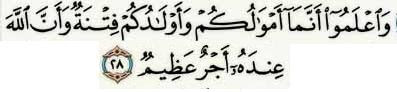 وَٱعْلَمُوٓا۟ أَنَّمَآ أَمْوَٰلُكُمْ وَأَوْلَٰدُكُمْ فِتْنَةٌ وَأَنَّ ٱللَّهَ
عِندَهُۥٓ أَجْرٌ عَظِيمٌ ٢٨